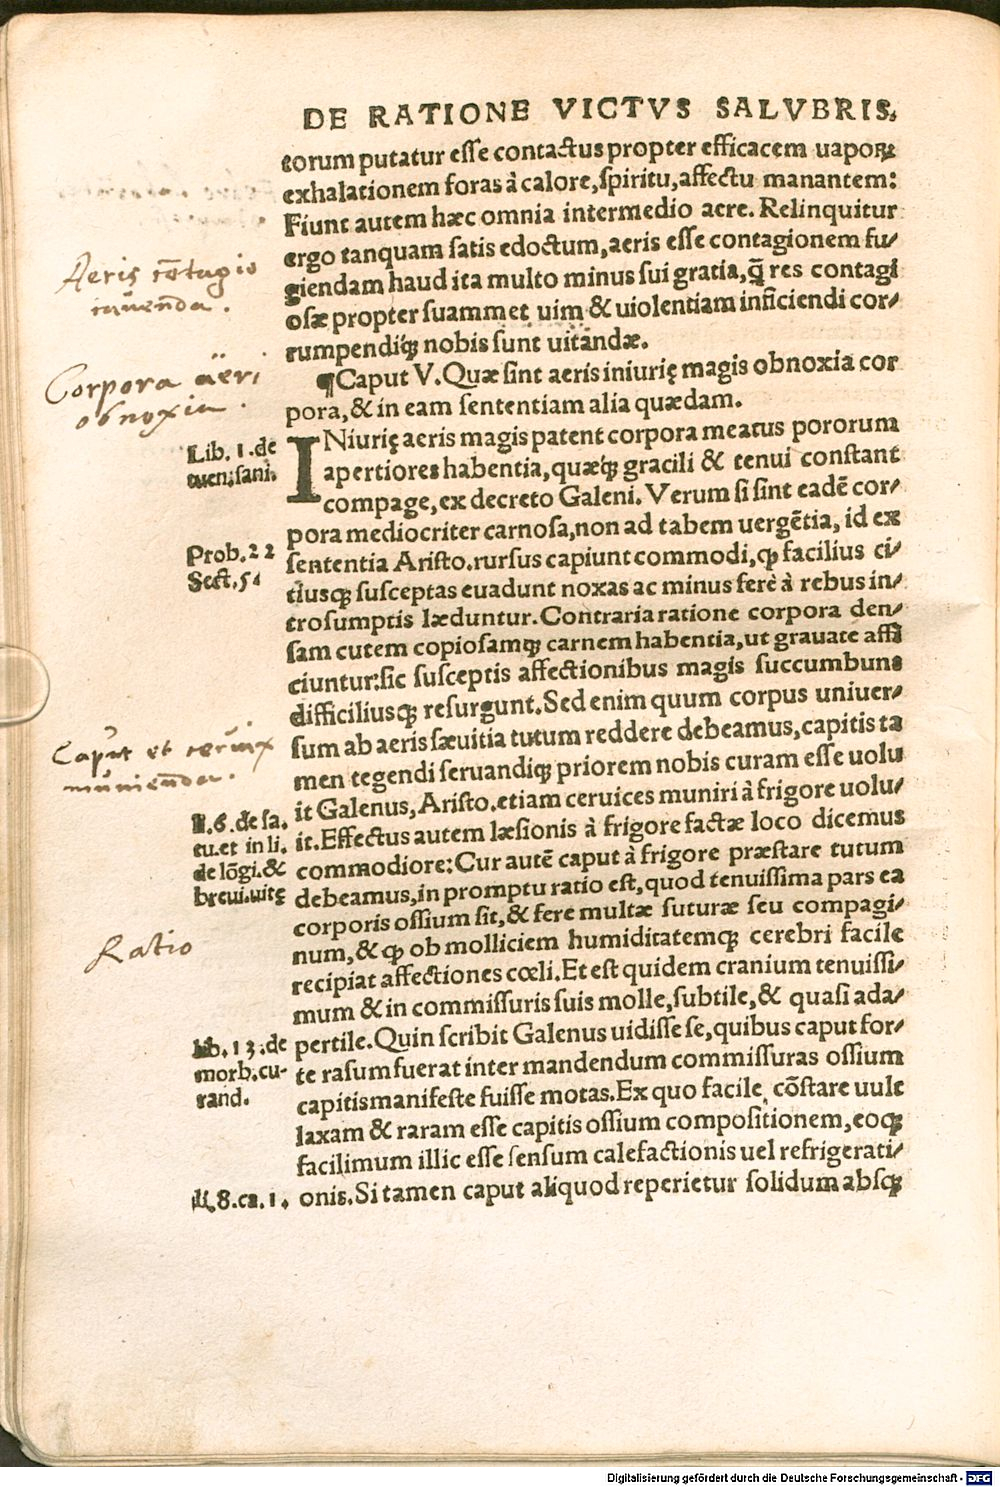 DE RATIONE VICTVS SALVBRIS.
eorum putatur esse contactus propter efficacem uaporꝝ
exhalationem foras à calore, spiritu, affectu manantem:
Fiunt autem hæc omnia intermedio aere. Relinquitur
ergo tanquam satis edoctum, aeris esse contagionem fu/
giendam haud ita multo minus sui gratia, q̃ res contagi
osæ propter suammet uim & uiolentiam inficiendi cor/
rumpendiq́ꝫ nobis sunt uitandæ.
Aeris cõtagio
cauẽnda.
¶Caput V. Quæ sint aeris iniurię magis obnoxia cor
pora, & in eam sententiam alia quædam.
Corpora aëri
obnoxia.
INiurię aeris magis patent corpora meatus pororum
apertiores habentia, quæq́ꝫ gracili & tenui constant
compage, ex decreto Galeni. Verum si sint eadẽ cor/
pora mediocriter carnosa, non ad tabem uergẽtia, id ex
sententia Aristo. rursus capiunt commodi, ꝙ facilius ci/
tiusqꝫ susceptas euadunt noxas ac minus ferè à rebus in/
trosumptis læduntur. Contraria ratione corpora den/
sam cutem copiosamqꝫ carnem habentia, ut grauate affi
ciuntur: sic susceptis affectionibus magis succumbunt
difficiliusqꝫ resurgunt. Sed enim quum corpus uniuer/
sum ab aeris sæuitia tutum reddere debeamus, capitis ta
men tegendi seruandiqꝫ priorem nobis curam esse uolu
it Galenus, Aristo. etiam ceruices muniri à frigore uolu/
it. Effectus autem læsionis à frigore factæ loco dicemus
commodiore: Cur autẽ caput à frigore præstare tutum
debeamus, in promptu ratio est, quod tenuissima pars ea
corporis ossium sit, & fere multæ suturæ seu compagi/
num, & ꝙ ob molliciem humiditatemqꝫ cerebri facile
recipiat affectiones cœli. Et est quidem cranium tenuissi/
mum & in commissuris suis molle, subtile, & quasi ada/
pertile. Quin scribit Galenus uidisse se, quibus caput for/
te rasum fuerat inter mandendum commissuras ossium
capitis manifeste fuisse motas. Ex quo facile cõstare uule
laxam & raram esse capitis ossium compositionem, eoqꝫ
facilimum illic esse sensum calefactionis uel refrigerati/
onis. Si tamen caput aliquod reperietur solidum absqꝫ
Lib. 1. de
tuen. sani.
Prob. 22
Sect. 5.
Caput et ceruix
muniẽnda.
I. 6. de sa.
tu. et in li.
de lõgi. &
breui. uitę
Ratio
lib. 13. de
morb. cu-
rand.
li. 8. ca. 1.